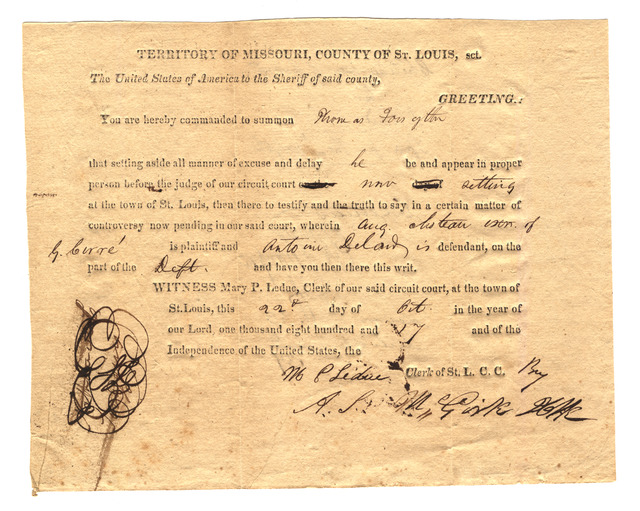 TERRITORY OF MISSOURI, COUNTY OF ST. LOUIS, sct.
The United States of America to the Sheriff of said county,
GREETING.:
You are hereby commanded to summon Thomas Forsyton
that setting aside all manner of excuse and delay he be and appear in proper
person before the judge of our circuit court now setting
at the town of St. Louis, then there to testify and the truth to say in a certain matter of
controversy now pending in our said court, wherein Aug. Choteau exor. of
G. Cerré is plaintiff and Antoine is defendant, on the
part of the Deft. and have you then there this writ.
WITNESS Mary P. Leduc, Clerk of our said circuit court, at the town of
St. Louis, this 22d day of Oct. in the year of
our Lord, one thousand eight hundred and 17 and of the
Independence of the United States, the
M P Leduc Clerk of St. L. C. C. By
A.